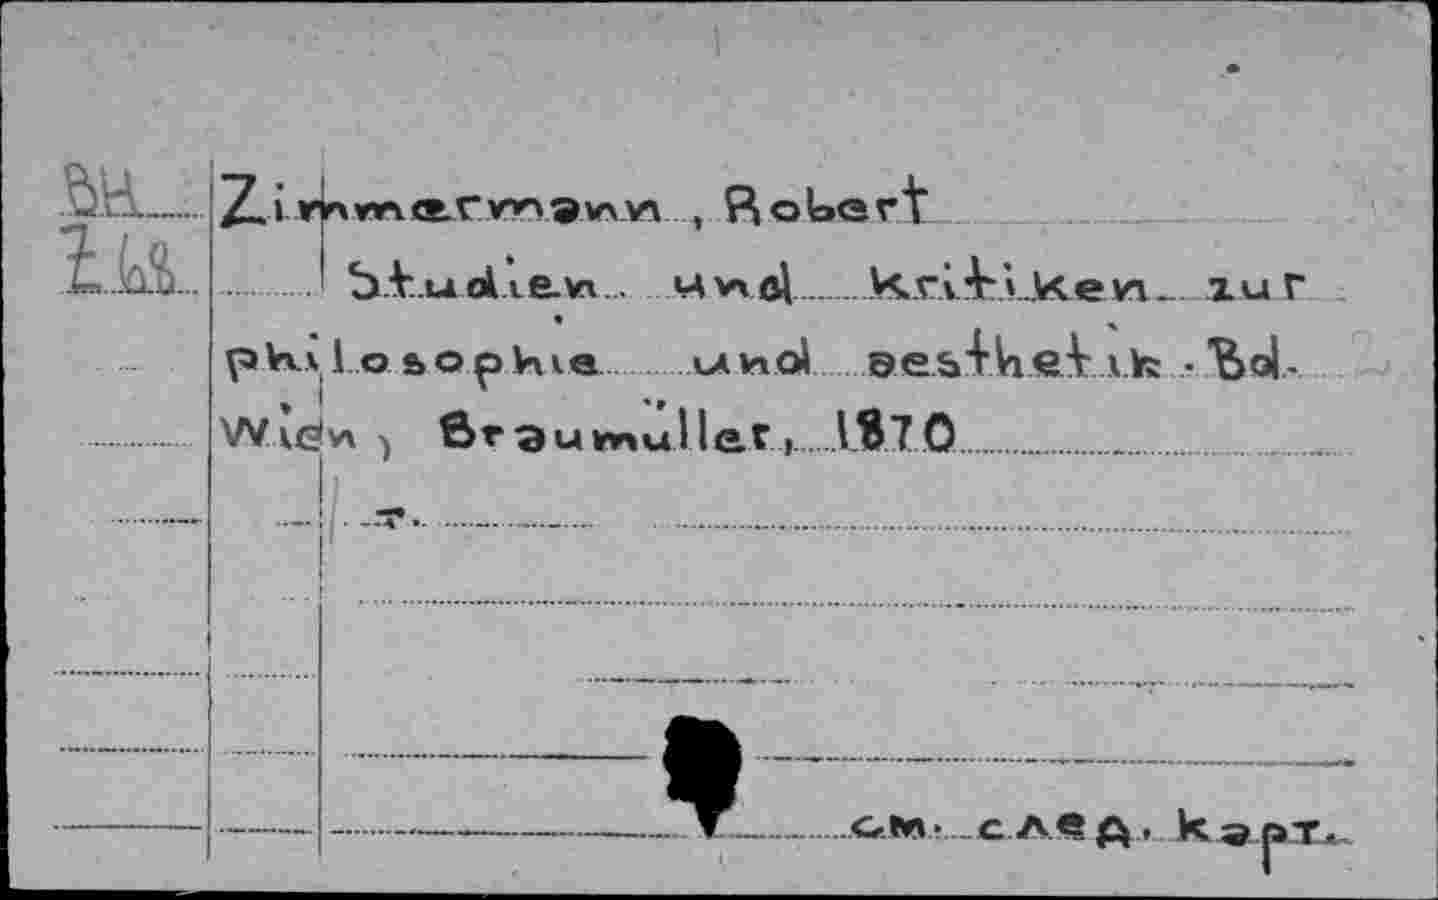 Zimmermann, Robert
Studien und Kritiken zur
philosophie und aesthetik. Bd.
Wien, Braumüller, 1870
т.
см. след. карт.